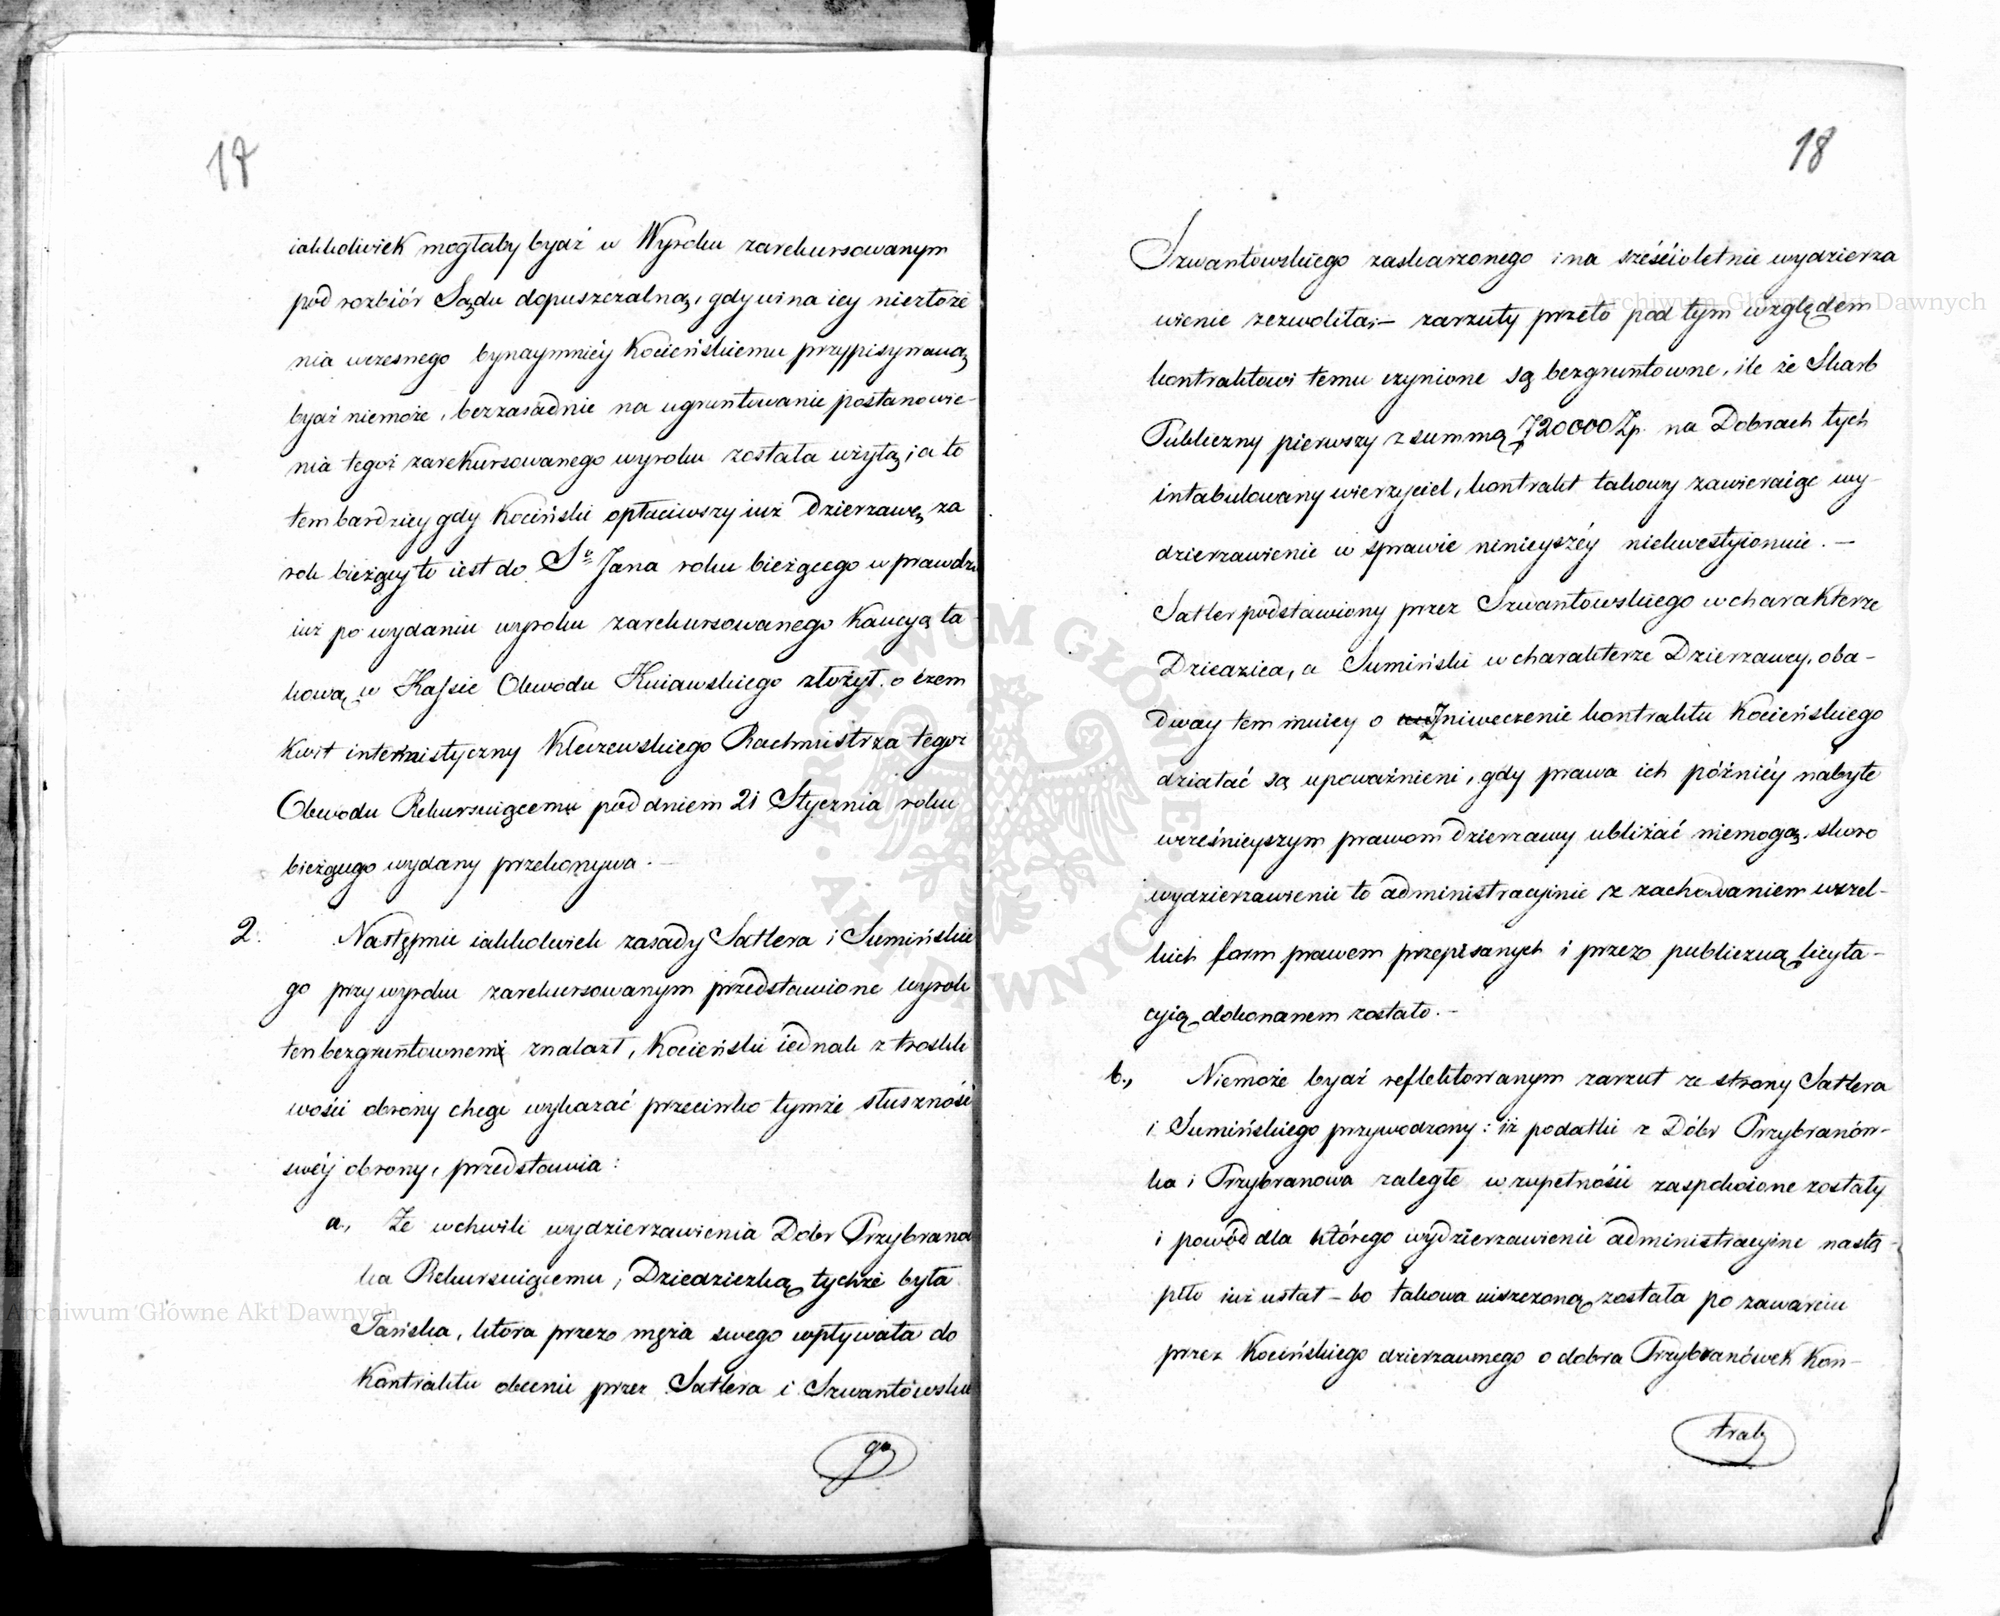 17
iakkolwiek mogłaby bydź w Wyroku zarekursowanym
pod rozbiór Sądu dopuszczalną, gdy wina iey niezłoże
nia wczesnego bynaymniéy Kocieńskiemu przypisywaną
bydź niemoże, bezzasadnie na ugruntowanie postanowie-
nia tegoż zarekursowanego wyroku została użytą; a to
tembardziey gdy Kociński opłaciwszy iuż Dzierzawę za
rok bieżący to iest do Sgo Jana roku bieżącego w prawdzie
iuż po wydaniu wyroku zarekursowanego Kaucyą ta
kową w Kassie Obwodu Kuiawskiego złożył. o czem
Kwit interimistyczny Kleczewskiego Rachmistrza tegoż
Obwodu Rekursuiącemu pod dniem 21 Stycznia roku
bieżącego wydany przekonywa. —
2. Następnie iakkolwiek zasady Satlera i Sumińskie
go przy wyroku zarekursowanym przedstawione wyrok
ten bezgruntownemi znalazł, Kocieński iednak z troskli
wości obrony chcąc wykazać przeciwko tymże słuszność
swéj obrony, przedstawia:
a, Że w chwili wydzierzawienia Dóbr Przybranó
ka Rekursuiącemu, Dziedziczką tychże była
Jańska, która przez męża swego wpływała do
Kontraktu obecnie przez Satlera i Szwantowskie
go
Archiwum Główne Akt Dawnych
18
Szwantowskiego zaskarzonego i na sześcioletnie wydzierza
wienie zezwoliła; — zarzuty przeto pod tym względem
kontraktowi temu czynione są bezgruntowne, ile że Skarb
Publiczny pierwszy z summą 720000 Zp. na Dobrach tych
intabulowany wierzyciel, kontrakt takowy zawieraiąc wy-
dzierzawienie w sprawie ninieyszéy niekwestyionuie. —
Satler podstawiony przez Szwantowskiego w charakterze
Dziedzica, a Sumiński w charakterze Dzierzawcy, oba-
dway tem mniey o Zniweczenie kontraktu Kocieńskiego
działać są upoważnieni, gdy prawa ich późniéy nabyte
wcześnieyszym prawom dzierzawy ubliżać niemogą, skoro
wydzierzawienie to administracyinie z zachowaniem wszel-
kich form prawem przepisanych i przez publiczną licyta-
cyią dokonanem zostało. —
b., Niemoże bydź reflektowanym zarzut ze strony Satlera
i Sumińskiego przywodzony: iż podatki z Dóbr Przybranów-
ka i Przybranowa zaległe w zupełności zaspokoione zostały
i powód dla którego wydzierzawienie administracyine nastą-
piło iuż ustał — bo takowa uiszczoną została po zawarciu
przez Kocińskiego dzierzawnego o dobra Przybranówek Kon-
trak
Archiwum Główne Akt Dawnych
ARCHIWUM GŁÓWNE · AKT DAWNYCH ·